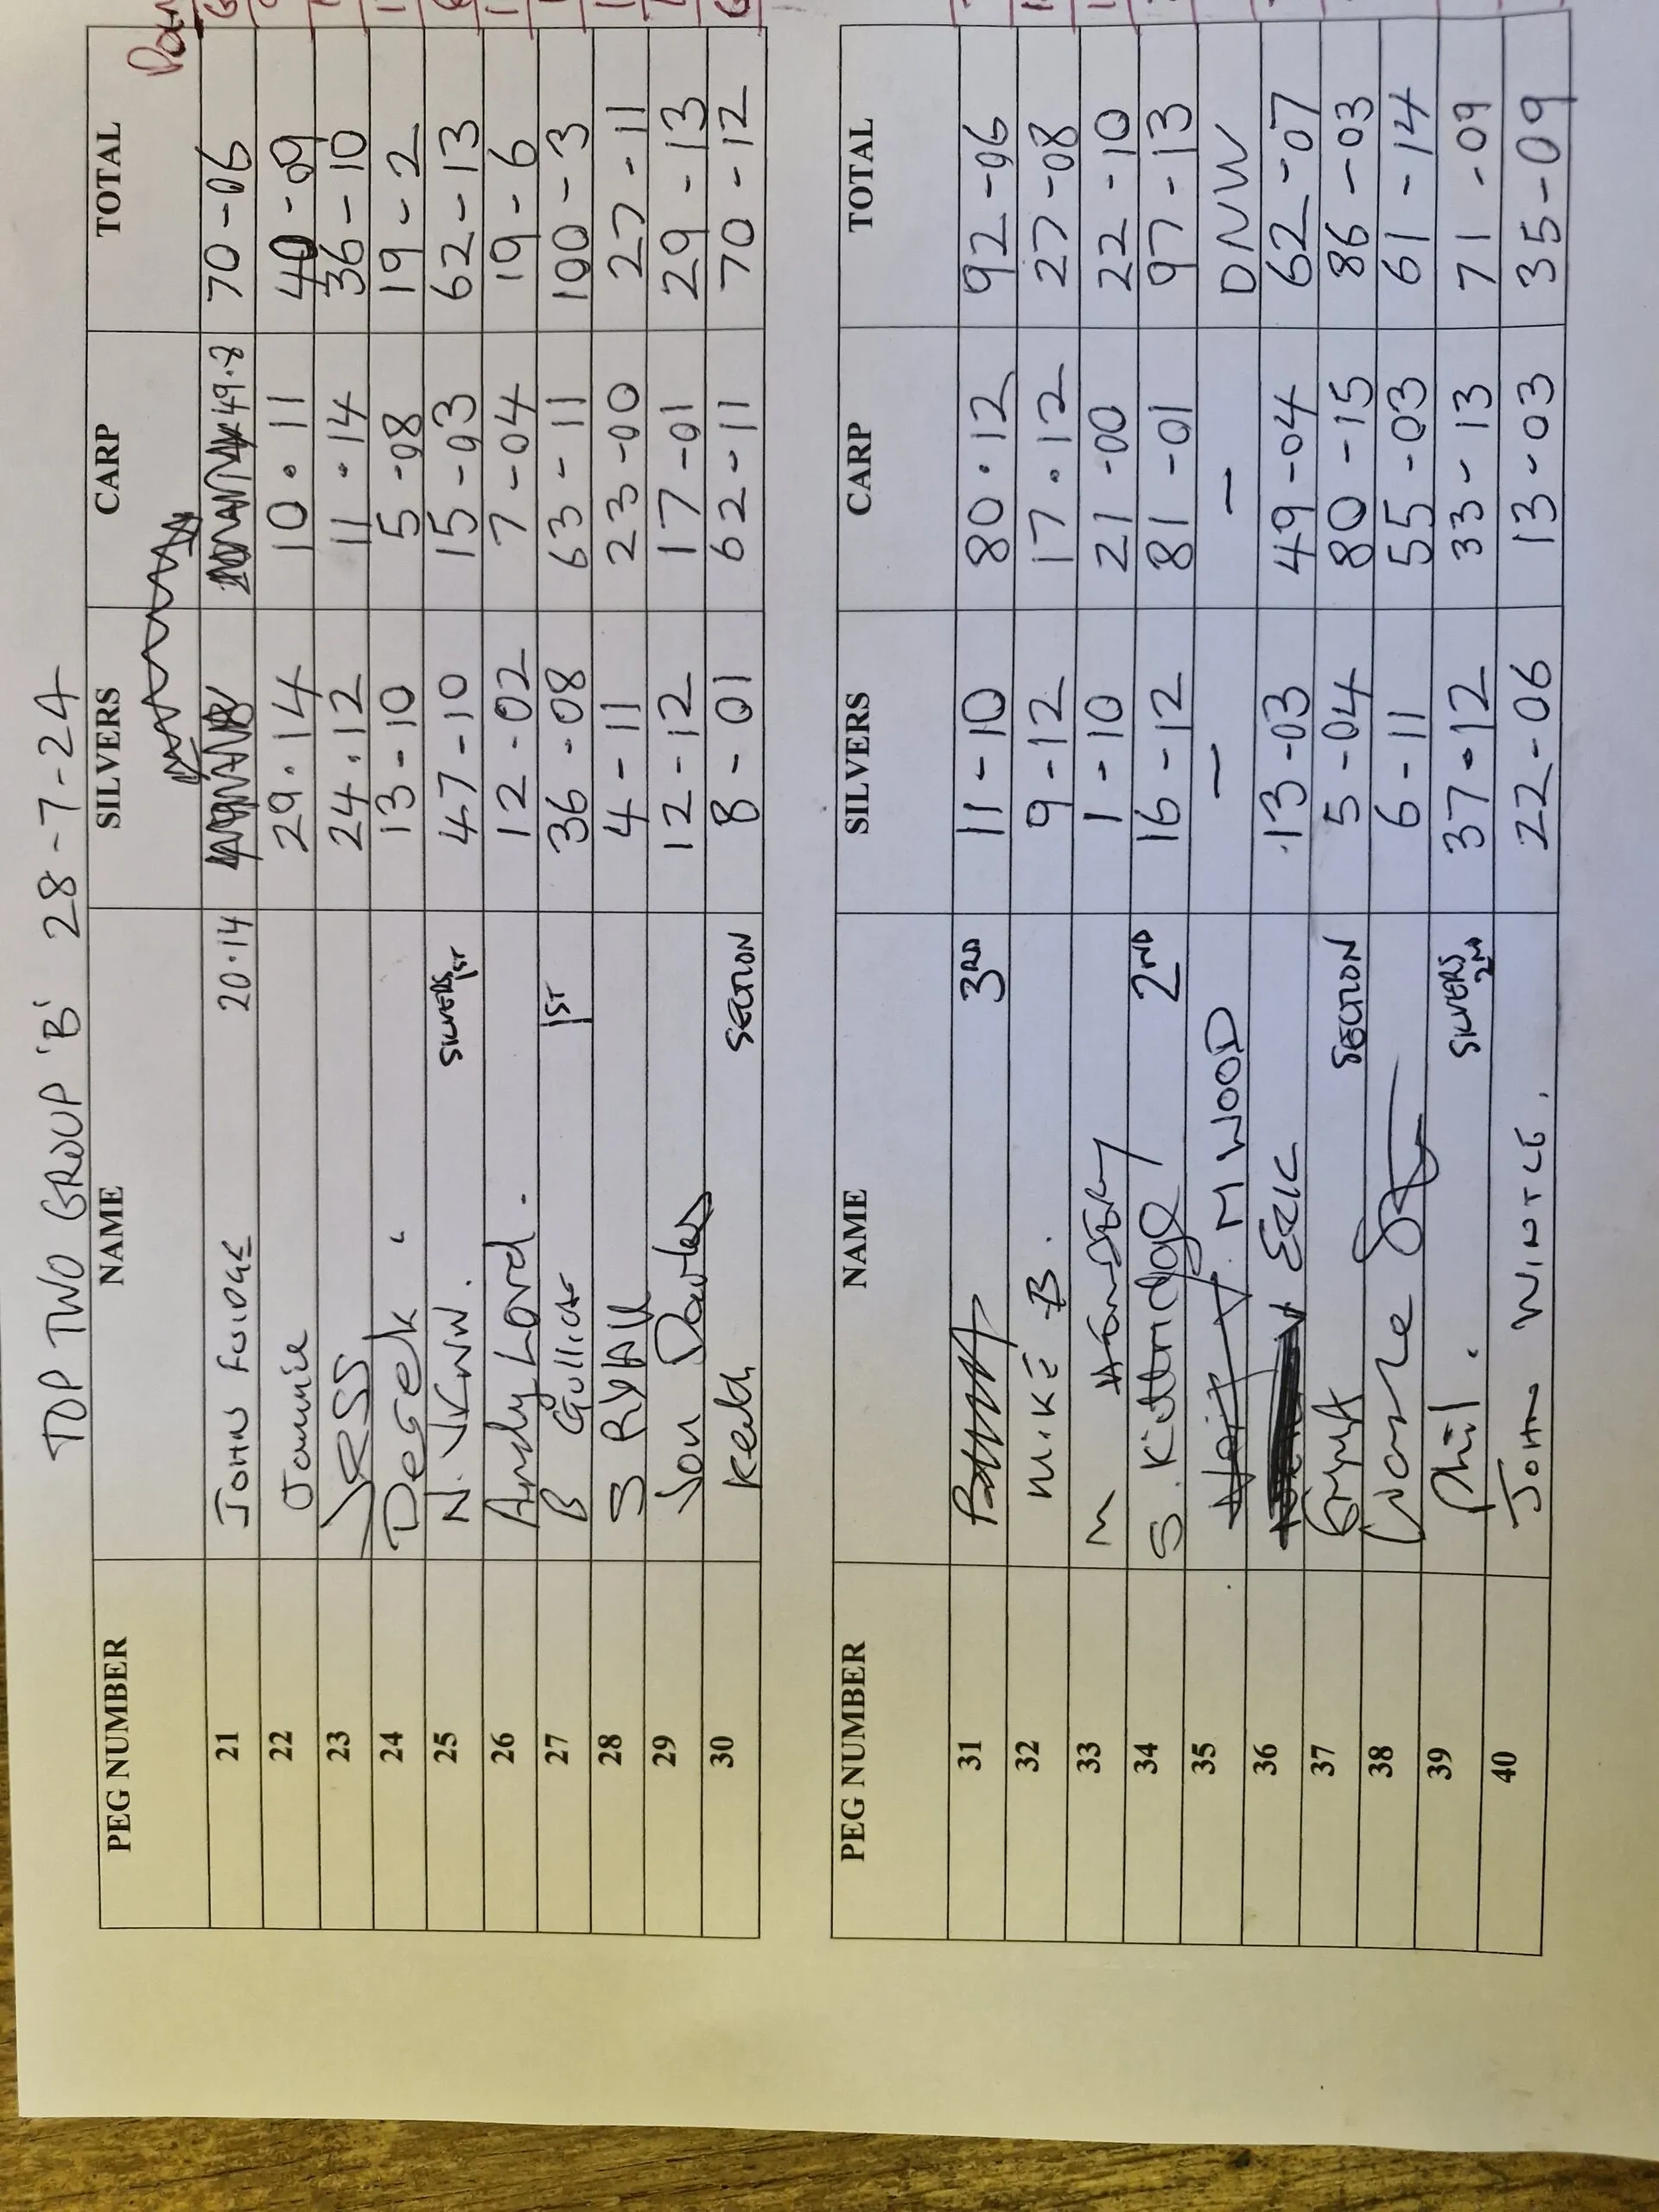 TOP TWO GROUP 'B' 28-7-24
PEG NUMBER NAME SILVERS CARP TOTAL
21 JOHN FUIDGE 20.14 49.8 70-06
22 29.14 10.11 40-09
23 24.12 11.14 36-10
24 Derek 13-10 5-08 19-2
25 SILVERS 1ST 47-10 15-03 62-13
26 Andy Lord. 12-02 7-04 19-6
27 B Gullick 1ST 36-08 63-11 100-3
28 S RYALL 4-11 23-00 27-11
29 Jon Davies 12-12 17-01 29-13
30 Keith SECTION 8-01 62-11 70-12
PEG NUMBER NAME SILVERS CARP TOTAL
31 3RD 11-10 80.12 92-06
32 MIKE B. 9-12 17.12 27-08
33 M 1-10 21-00 22-10
34 S. Kittridge 2ND 16-12 81-01 97-13
35 M WOOD - - DNW
36 ERIC 13-03 49-04 62-07
37 SECTION 5-04 80-15 86-03
38 6-11 55-03 61-14
39 Phil. SILVERS 2ND 37.12 33-13 71-09
40 JOHN WINTLE. 22-06 13-03 35-09